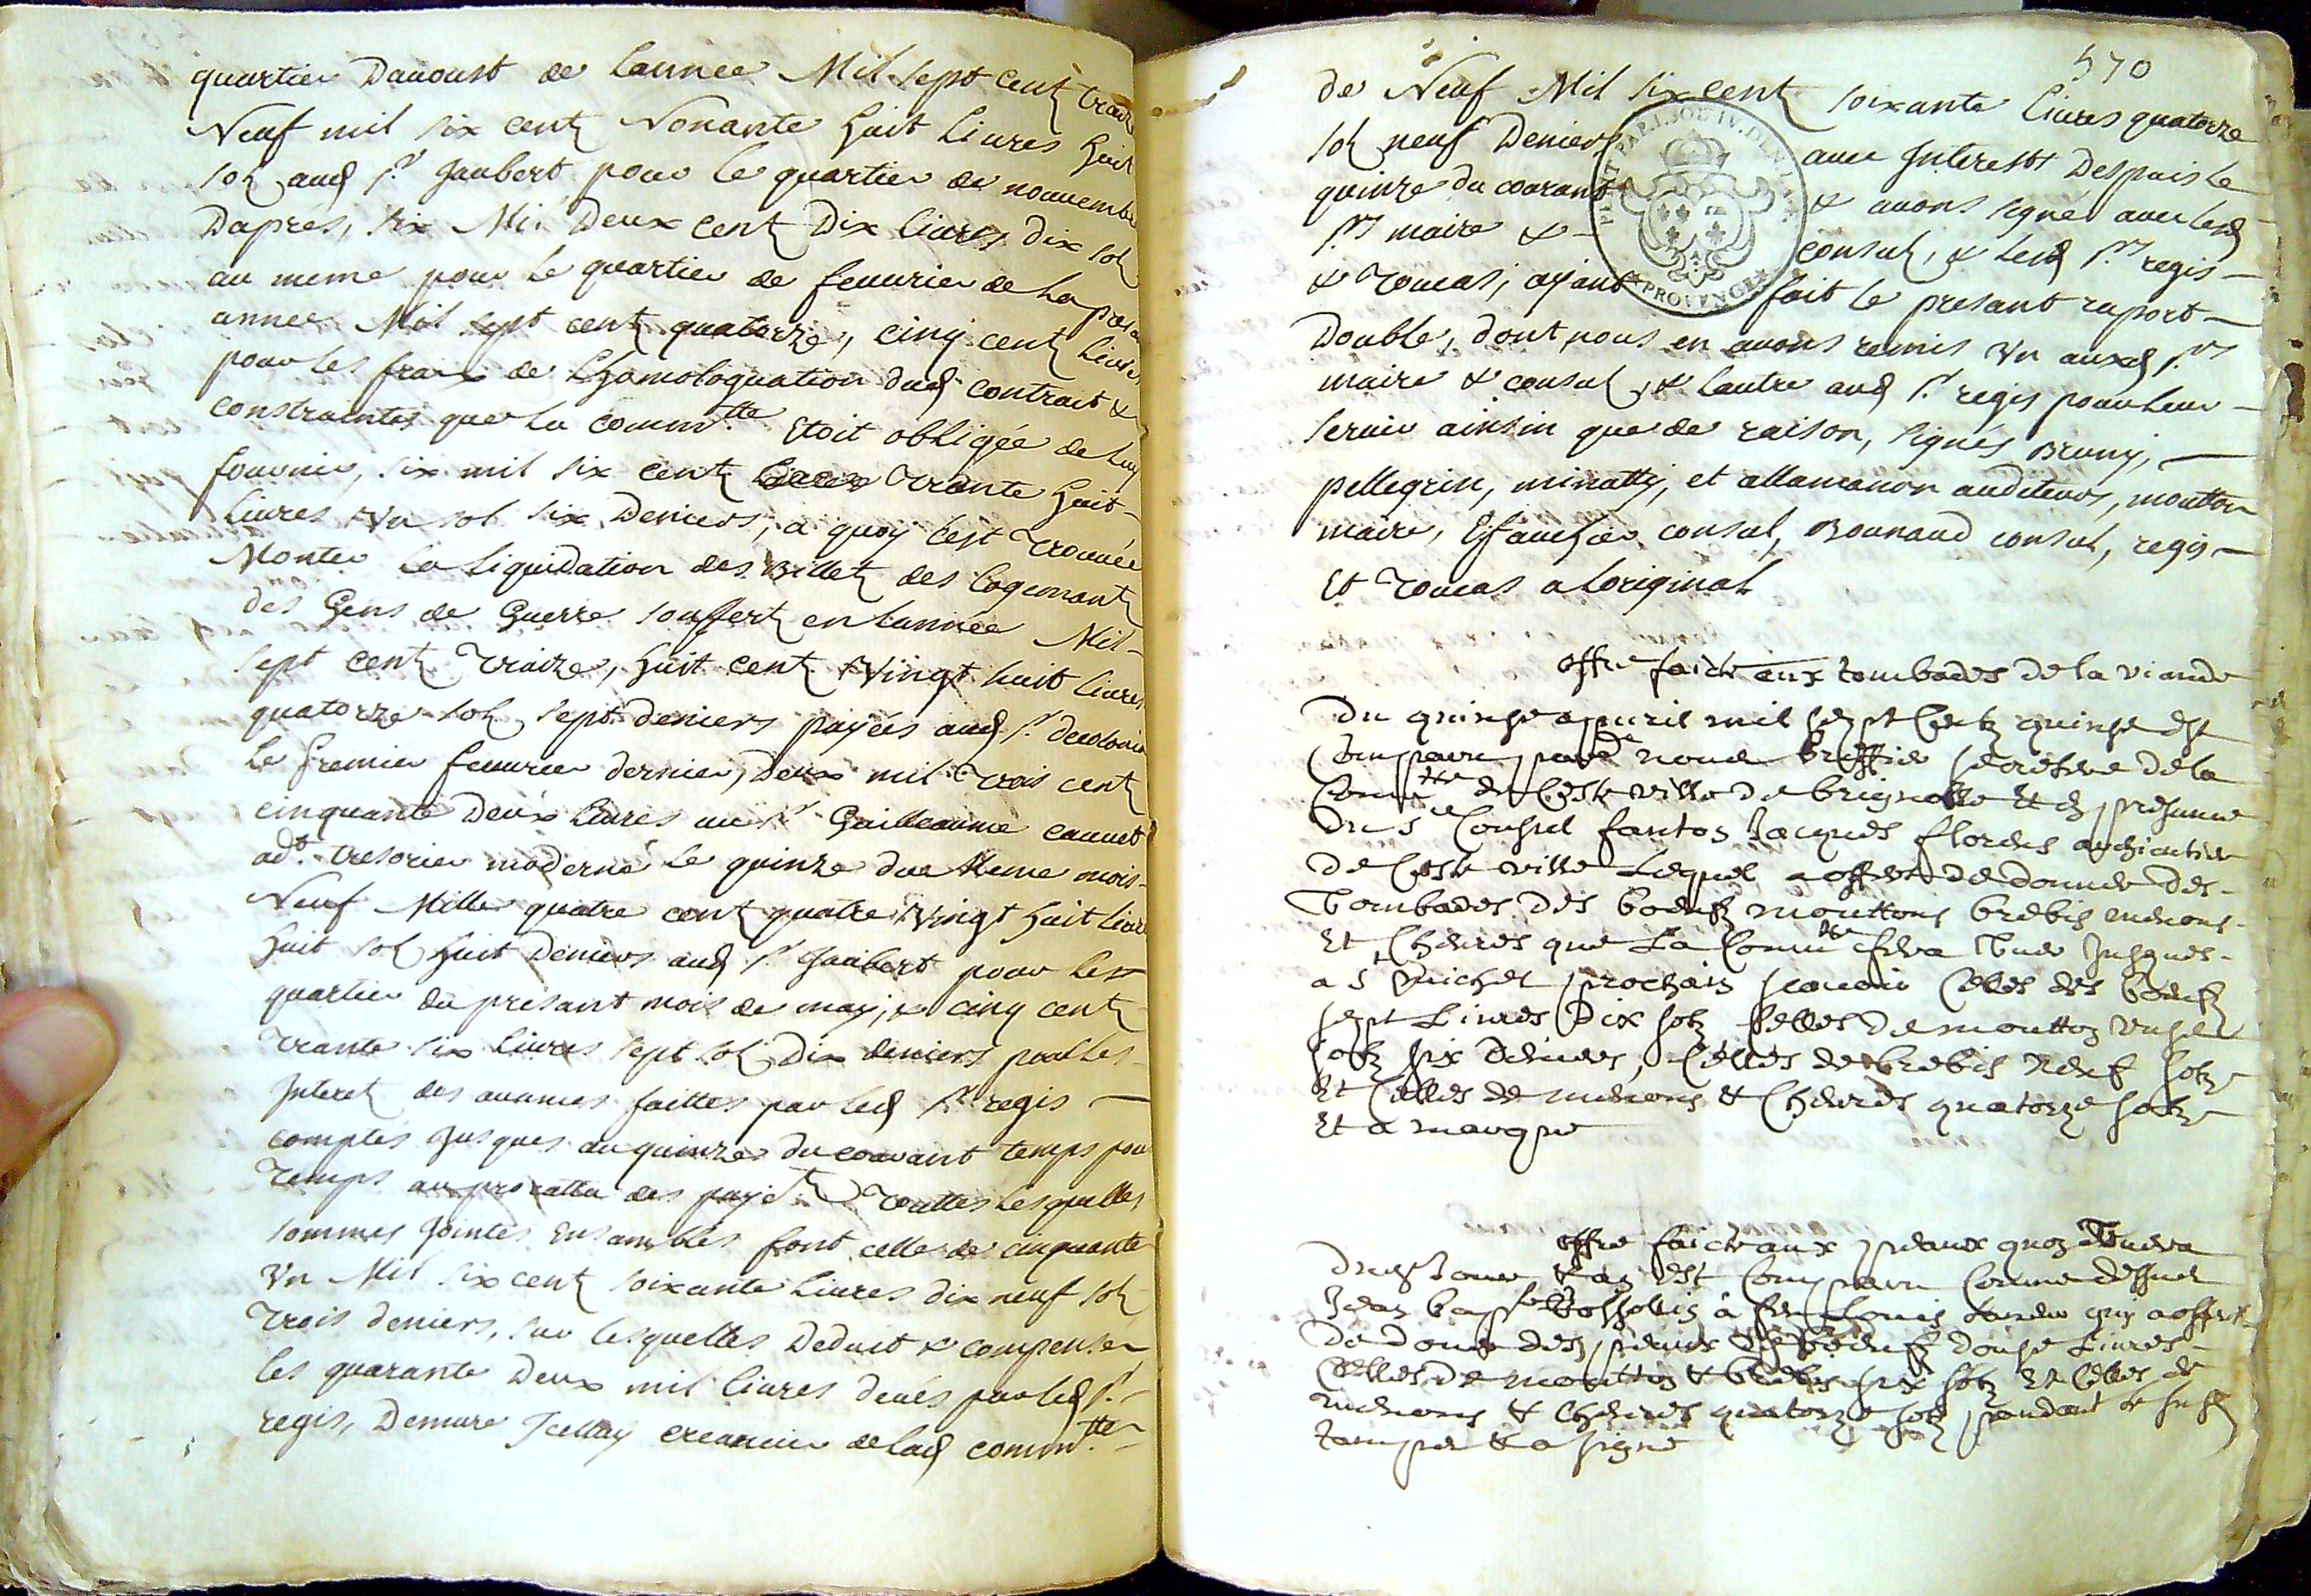 quartier Daoust de Lannee Mil sept cent traize
Neuf mil six cent Nonante huit Liures huit
sol aud sr Jaubert pour le quartier de nouembre
Daprés, six Mil Deux cent Dix liures dix sol
au meme pour le quartier de feurier de La presante
année Mil sept cent quatorze, cinq cent liures
pour les fraix de Lhomologuation dud contract &
constraintes que la commtte Etoit obligée de Luy
fournir, six mil six cent trante huit
Liures Vn sol six Deniers, a quoy cest trouuée
Monter la Liquidation des Billet des Logemant
des Gens de Guerre souffert en Lannée Mil
sept cent traize, huit cent Vingt huit liures
quatorze sol sept deniers payées aud sr decolonia
Le premier feurier dernier, Deux mil trois cent
cinquante Deux Liures au sr Guilleaume cauuet
adt tresorier moderne le quinze du meme mois
Neuf Mille quatre cent quatre Vingt huit liures
huit sol huit Deniers aud sr Jaubert pour les
quartier du presant mois de may, & cinq cent
trante six liures sept sol Dix deniers pour les
Interet des auances faittes par led sr regis
comptés Jusques au quinze du courant temps pour
temps au proratta des payet touttes Lesquelles
sommes Jointes Ensambles font celle de cinquante
Vn Mil six cent soixante liures dix neuf sol
trois deniers, sur lesquelles Deduit & compensé
les quarante Deux mil liures deués par led sr
regis, Demure Icelluy creancier de lad commtte
570
de Neuf Mil six cent soixante Liures quatorze
sol neuf Deniers auec Interestz Despuis le
quinze du courant & auons signé auec lesd
srs maire & consul, & lesd srs regis
& toucas, ayant fait le presant raport
Double, dont nous en auons remis Vn auxd srs
maire & consul, & lautre aud sr regis pour leur
seruir ainsin que de raison, signés Bruny,
pellegrin, minatty, et allamanon auditeurs, moutton
maire, Efauchier consul, Bounaud consul, regis
Et toucas a Loriginal
offre faicte aux tombades de la viande
Du quinse apuril mil sept Centz quinse est
Comparu pardt nous Greffier secrétere de la
Commtté de Ceste ville de brignolle & en presance
Du sr Consul fanton Jacques flordes
de Ceste ville Lequel a offert de donner des
Tombades des boeufz mouttons brebis menons
Et Cheures que La Commtté fera tuer Jusques
a St Michel prochain scauoir Celles des boeufz
sept Liures Dix solz Celles de moutton unse
solz six deniers, Celles de brebis neuf solz
Et Celles de menons & Cheures quatorze solz
Et a marque
offre faicte aux peaux quon tuera
Dud Jour & an est Comparu Comme dessus
Jean bapte à feu Louis quy a offert
De donner des peaux de boeufz douse Liures
Celles de moutton & brebis six solz Et Celles de
menons & Cheures quatorze solz pandant le susd
temps & a signe
PETIT PAP. I. SOL IV. DEN. LA F.
PROVENCE